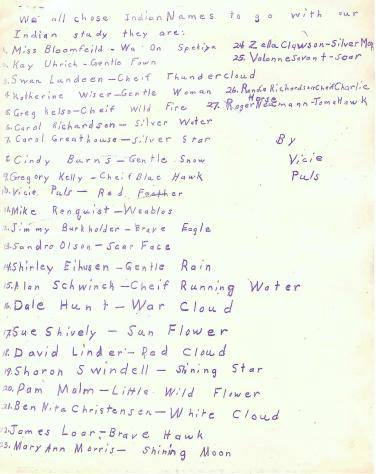 We all chose Indian Names to go with our
Indian study they are:
1. Miss Bloomfeild - Wa On Spekiya
2. Kay Uhrich - Gentle Fawn
3. Swan Lundeen - Cheif Thundercloud
4. Katherine Wiser - Gentle Woman
5. Greg Kelso - Cheif Wild Fire
6. Carol Richardson - Silver Water
7. Carol Greathouse - Silver Star
8. Cindy Burns - Gentle Snow
9. Gregory Kelly - Cheif Blue Hawk
10. Vicie Puls - Red Feather
11. Mike Renquist - Weablos
12. Jimmy Burkholder - Brave Eagle
13. Sandra Olson - Scar Face
14. Shirley Eihusen - Gentle Rain
15. Alan Schwinck - Cheif Running Water
16. Dale Hunt - War Cloud
17. Sue Shively - Sun Flower
18. David Linder - Red Cloud
19. Sharon Swindell - Shining Star
20. Pam Malm - Little Wild Flower
21. Ben Nita Christensen - White Cloud
22. James Loar - Brave Hawk
23. Mary Ann Morris - Shining Moon
24. Zella Clawson - Silver
25.
26. Randie Richardson Cheif Charlie
Horse
27. Roger Neumann - Tomahawk
By
Vicie
Puls